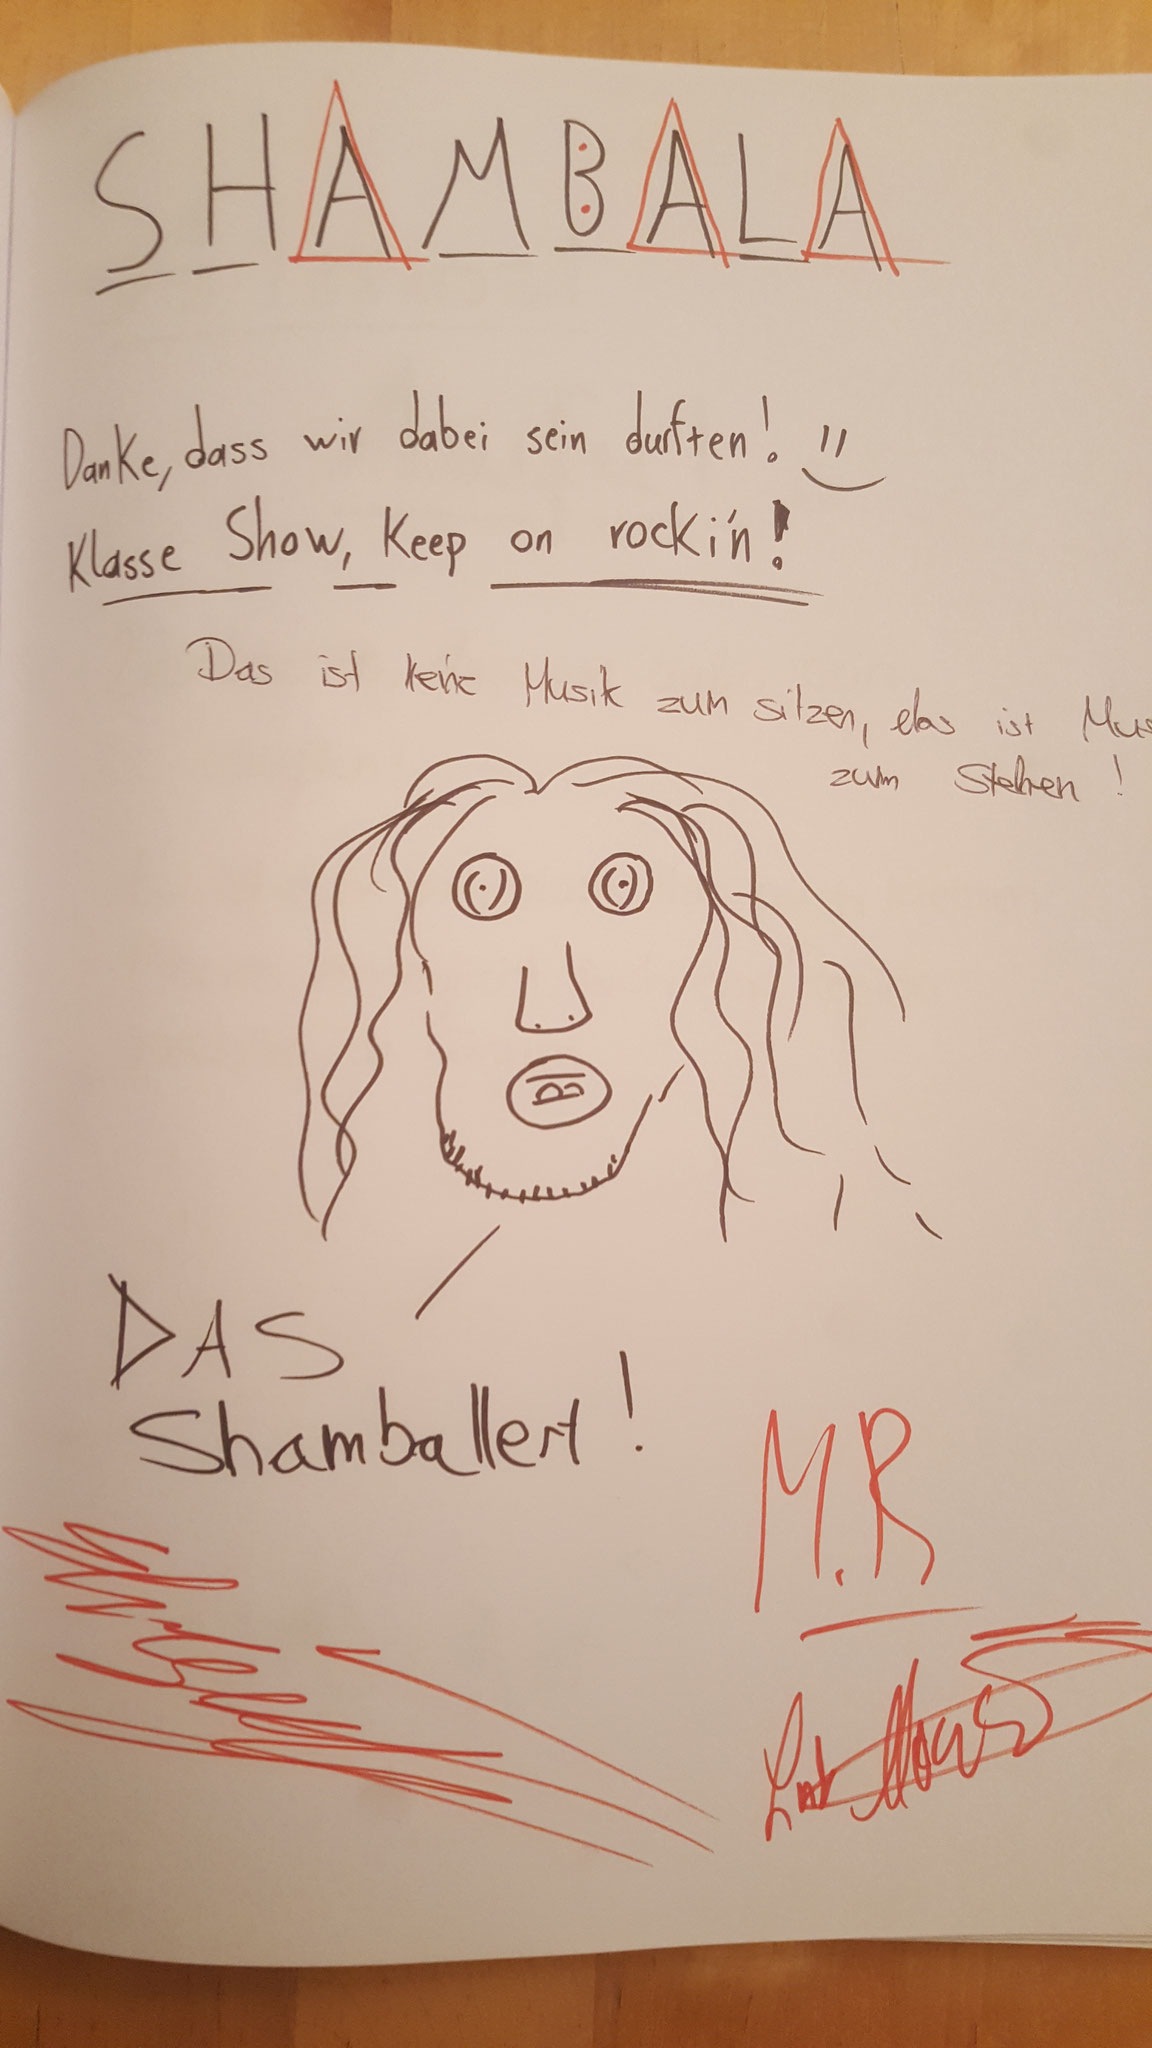 SHAMBALA
Danke, dass wir dabei sein durften!
Klasse Show, Keep on rocki'n!
Das ist keine Musik zum sitzen, das ist Mus
zum Stehen!
DAS
Shamballert!
M.R